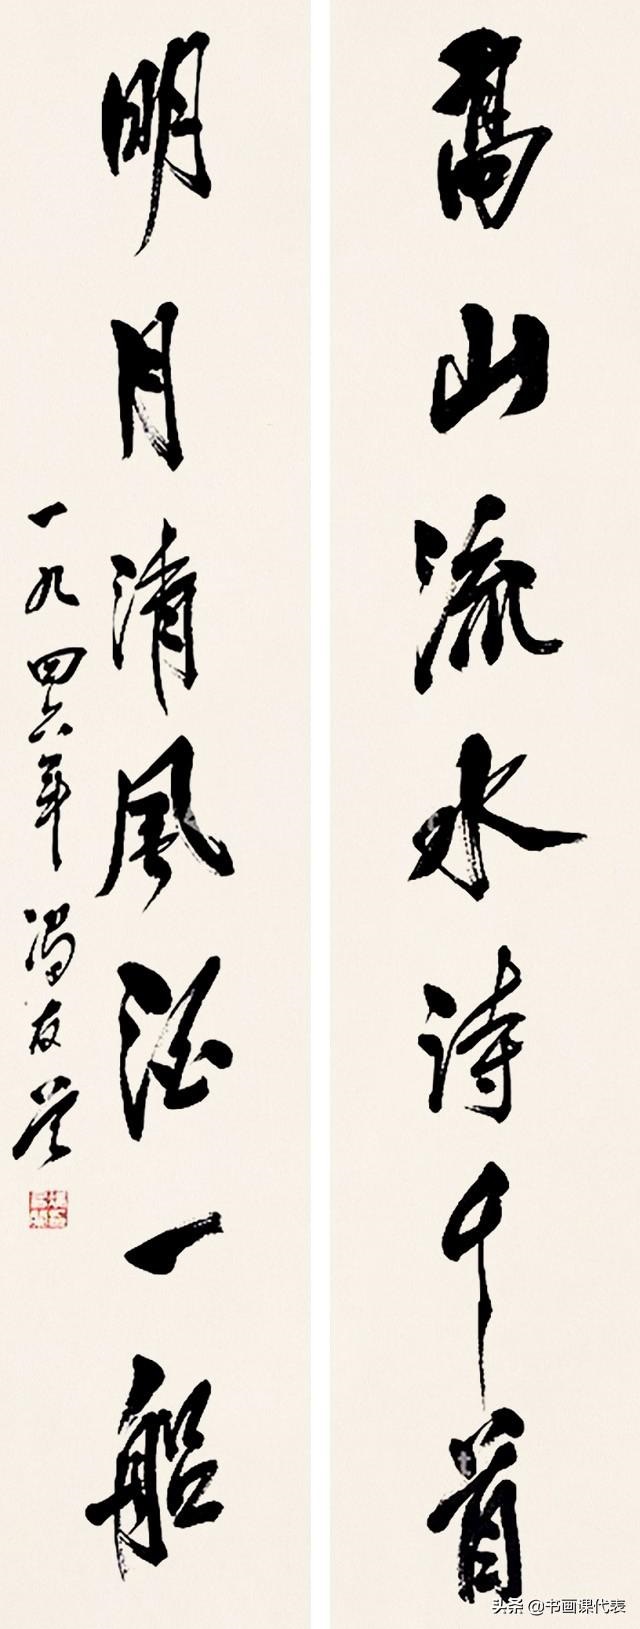 高山流水詩千首
明月清風酒一船
一九四六年馮友蘭
头条 @书画课代表